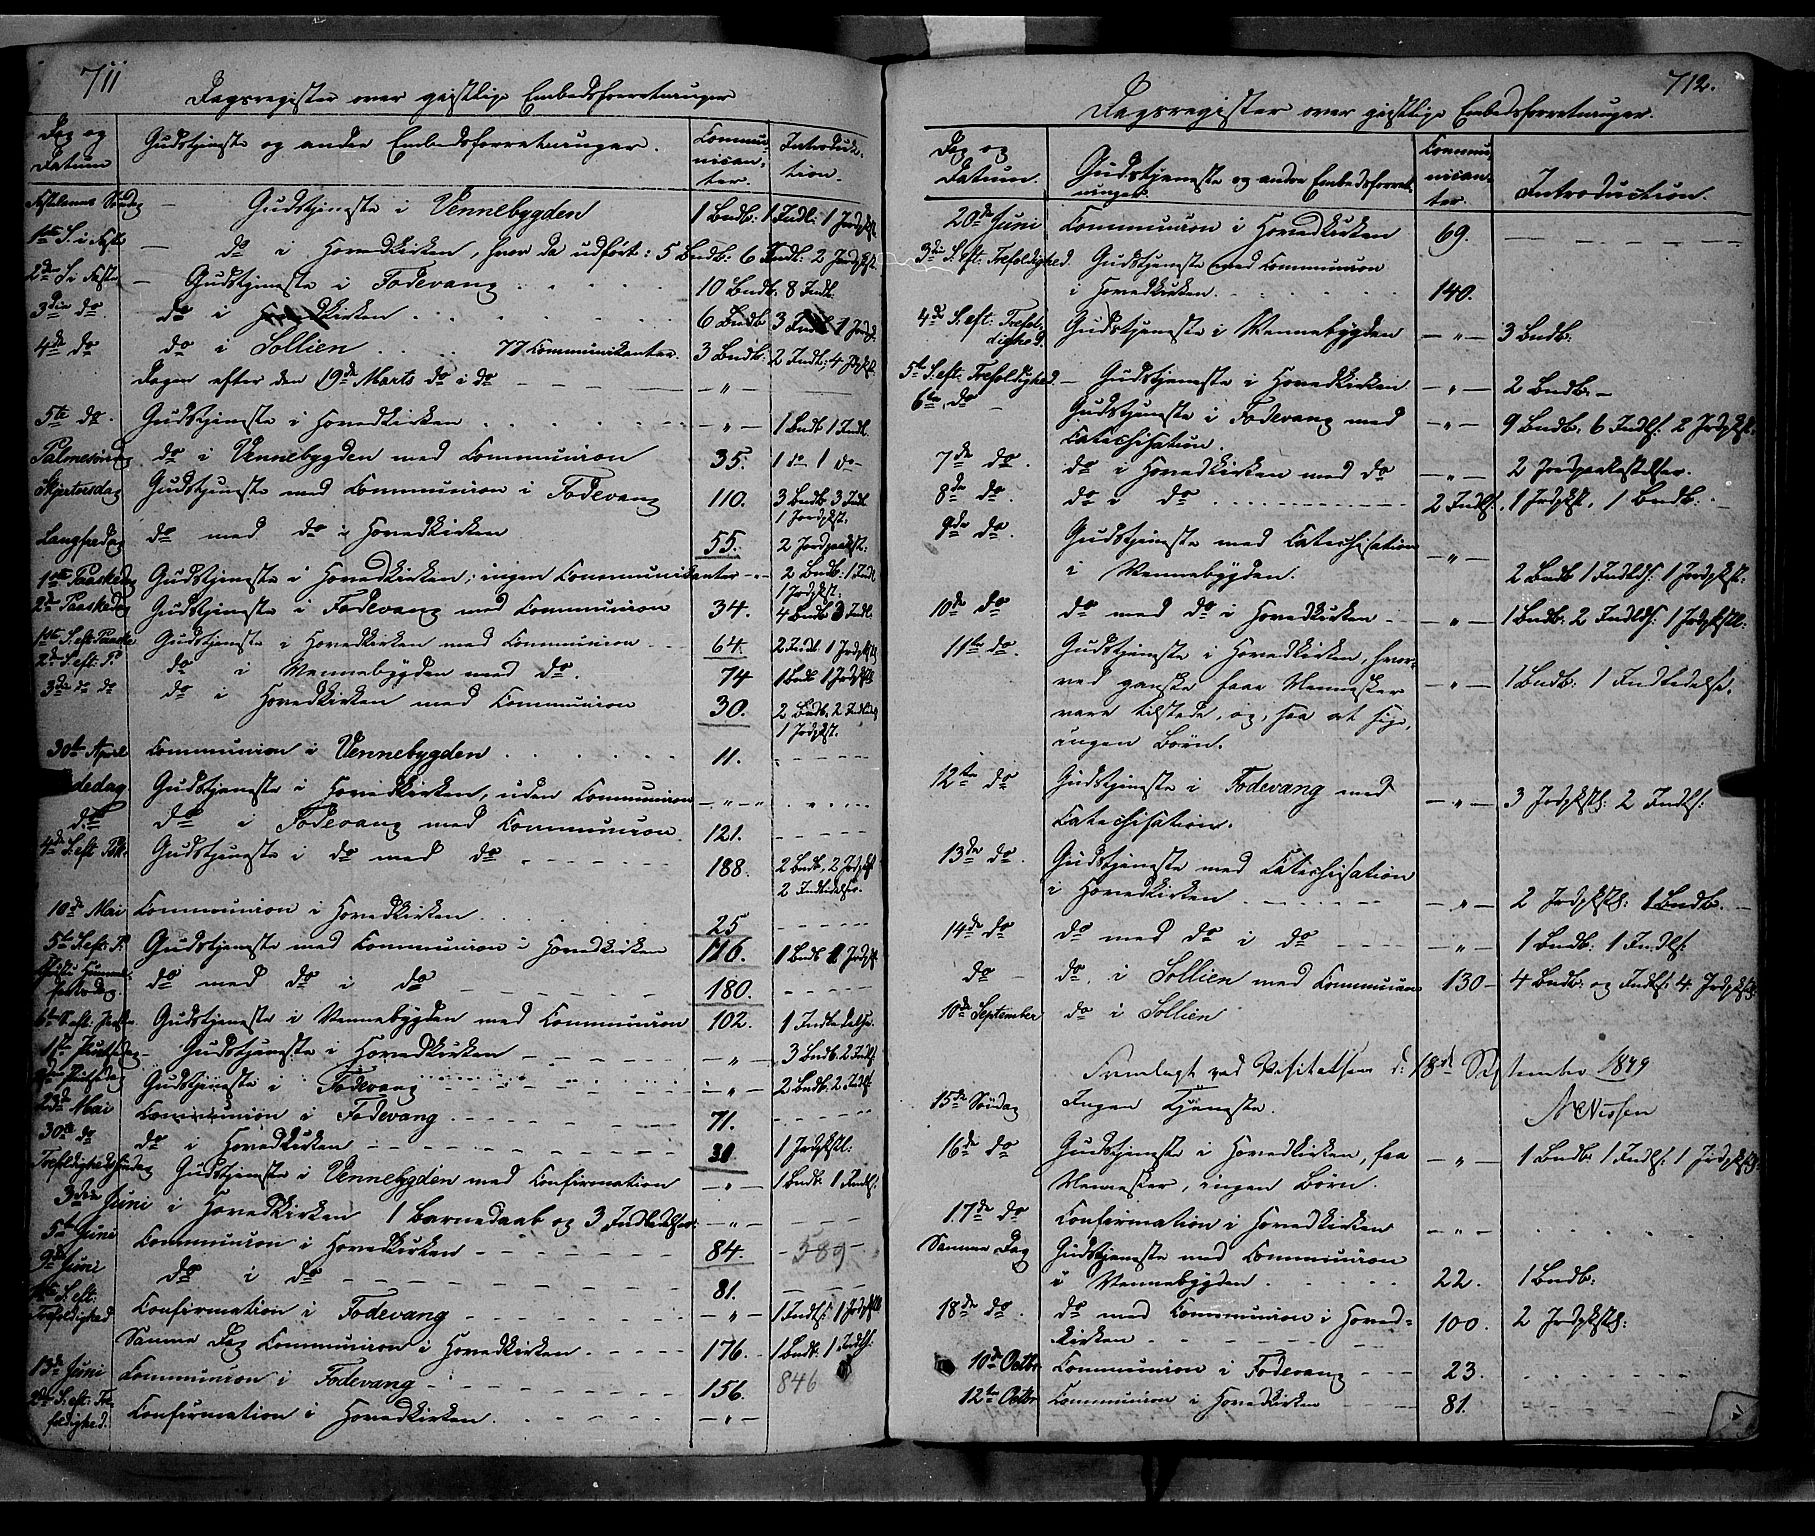 711
Dagsregister over geistlige Embedsforretninger
Dag og Datum
Gudstjeneste og andre Embedsforretninger.
Communicanter.
Introduktion.
Fastelavns Søndag — Gudstjeneste i Vennebygden 1 Brndb: 1 Indl: 1 Jordpkst
1ste S. i Faste — do i Hovedkirken, hvor da udført: 5 Brndb: 6 Indl: 2 Jordpkst.
2den S. i Faste — Gudstjeneste i Fodevang 10 Brndb. 8 Indl.
3die do. do i Hovedkirken 6 Brndb 3 Indl 1 Jordp.
4de do do i Sollien 77 Communikanter. 3 Brndb: 2 Indl: 4 Jpkst.
Dagen efter den 19de Marts do i do — " —
5te do. Gudstjeneste i Hovedkirken — " — 1 Brndb 1 Indl.
Palmesøndag do i Vennebygden med Communion 35. 1 do 1 do
Skjertorsdag Gudstjeneste med Communion i Fodevang 110. 3 Brndb 3 Indl
1 Jordpkst.
Langfredag do med do i Hovedkirken 55. 2 Jordpaakst:
1ste Paaskedag Gudstjeneste i Hovedkirken; ingen Communikanter - " - 2 Brndb: 1 Indl
1 Jordpkst:
2den Paaskedag Gudstjeneste i Fodevang med Communion 34. 4 Brndb 3 Indl.
1ste S. eft: Paaske Gudstjeneste i Hovedkirken med Communion 64. 2 Indl 1 Jordpkst
2den S. eft: P. do i Vennebygden med do. 74 1 Brndb 1 Jordpkst
3die do do do i Hovedkirken med Communion 30. 2 Brndb. 2 Indled
1 Jordpkst.
30te April Communion i Vennebygden 11.
dedag Gudstjeneste i Hovedkirken, uden Communion — " —
do do i Fodevang med Communion 121.
4de S. eft Pask. Gudstjeneste i do med do 188. 2 Brndb. 2 Jordpkst
2 Indledelser.
10de Mai Communion i Hovedkirken 25
5te S. eft: P. Gudstjeneste med Communion i Hovedkirken 116. 1 Brndb 1 Jordpk.
Christi Himmelfartsdag. do med do i do 180.
6te S. eft: Paaske Gudstjeneste i Vennebygden med Communion 102. 1 Indledelse.
1ste Pintsedag — Gudstjeneste i Hovedkirken — " — 3 Brndb. 2 Indls:
2den Pintsedag Gudstjeneste i Fodevang — " — 2 Brndb: 2 Indls
23de Mai Communion i Fodevang 71.
30te do do i Hovedkirken 31 1 Jordpkstl:
Trefoldighedssøndag Gudstjeneste i Vennebygden med Confirmation — " — 1 Brndb. 1 Indls:
3die Juni i Hovedkirken 1 Barnedaab og 3 Indledelser: — " —
5te Juni Communion i Hovedkirken 84. 589
9de Juni do i do 81.
1ste S. eft: Trefoldighed Confirmation i Fodevang — " — 1 Indls: 1 Jordpkstl
Samme Dag Communion i Hovedkirken 176. 1 Brndb. 1 Indls:
13de Juni Communion i Fodevang 156. 846
2den S. eft: Trefoldighed. Confirmation i Hovedkirken. — " —
712.
Dagsregister over geistlige Embedsforretninger.
Dag og Datum.
Gudstjeneste og andre Embedsforretninger.
Communicanter
Introduction.
20de Juni Communion i Hovedkirken 69.
3die S. eft: Trefoldighed. Gudstjeneste med Communion
i Hovedkirken. 140.
4de S. eft: Trefoldighed. Gudstjeneste i Vennebygden — " — 3 Brndb:
5te S. eft: Trefoldighed — Gudstjeneste i Hovedkirken — " — 2 Brndb. —
6te do — Gudstjeneste i Fodevang med — " — 9 Brndb. 6 Indls: 2 Jordpkst.
Catechisation.
7de do. do i Hovedkirken med do — " — 2 Jordpaakastelser.
8de do. do i do 2 Indls:, 1 Jordpkst, 1 Brndb. —
9de do. Gudstjeneste med Catechisation — " —
i Vennebygden. 2 Brndb 1 Indlds: 1 Jordpkst:
10de do do med do i Hovedkirken — " — 1 Brndb: 2 Indlds: 1 Jordpkstl:
11te do. Gudstjeneste i Hovedkirken, hvor-
ved ganske faae Mennesker — " — 1 Brndb: 1 Indledelse.
vare tilstede, og, saa at sige,
ingen Børn.
12te do Gudstjeneste i Fodevang med — " — 3 Jordpkstl: 2 Indls:
Catechisation.
13de do. Gudstjeneste med Catechisation
i Hovedkirken — " — 2 Jordpkstl: 1 Brndb. —
14de do do med do i do — " — 1 Brndb: 1 Indls:
do — do. i Sollien med Communion 130 — 4 Brndb: og Indls: 4 Jordpkstl:
10de September do i Sollien
Fremlagt ved Visitatsen d: 18de September 1849
15de Søndag Ingen Tjeneste. Nissen
16de do Gudstjeneste i Hovedkirken, faa — " — 1 Brndb: 1 Indls: 1 Jordpkstl:
Mennesker, ingen Børn.
17de do Confirmation i Hovedkirken — " —
Samme Dag Gudstjeneste med Communion
i Vennebygden 22. 1 Brndb:
18de do. do med Communion i Hoved-
kirken 100. 2 Jordpkstl:
10de Octbr Communion i Fodevang 23.
12te Octbr Communion i Hovedkirken 81.